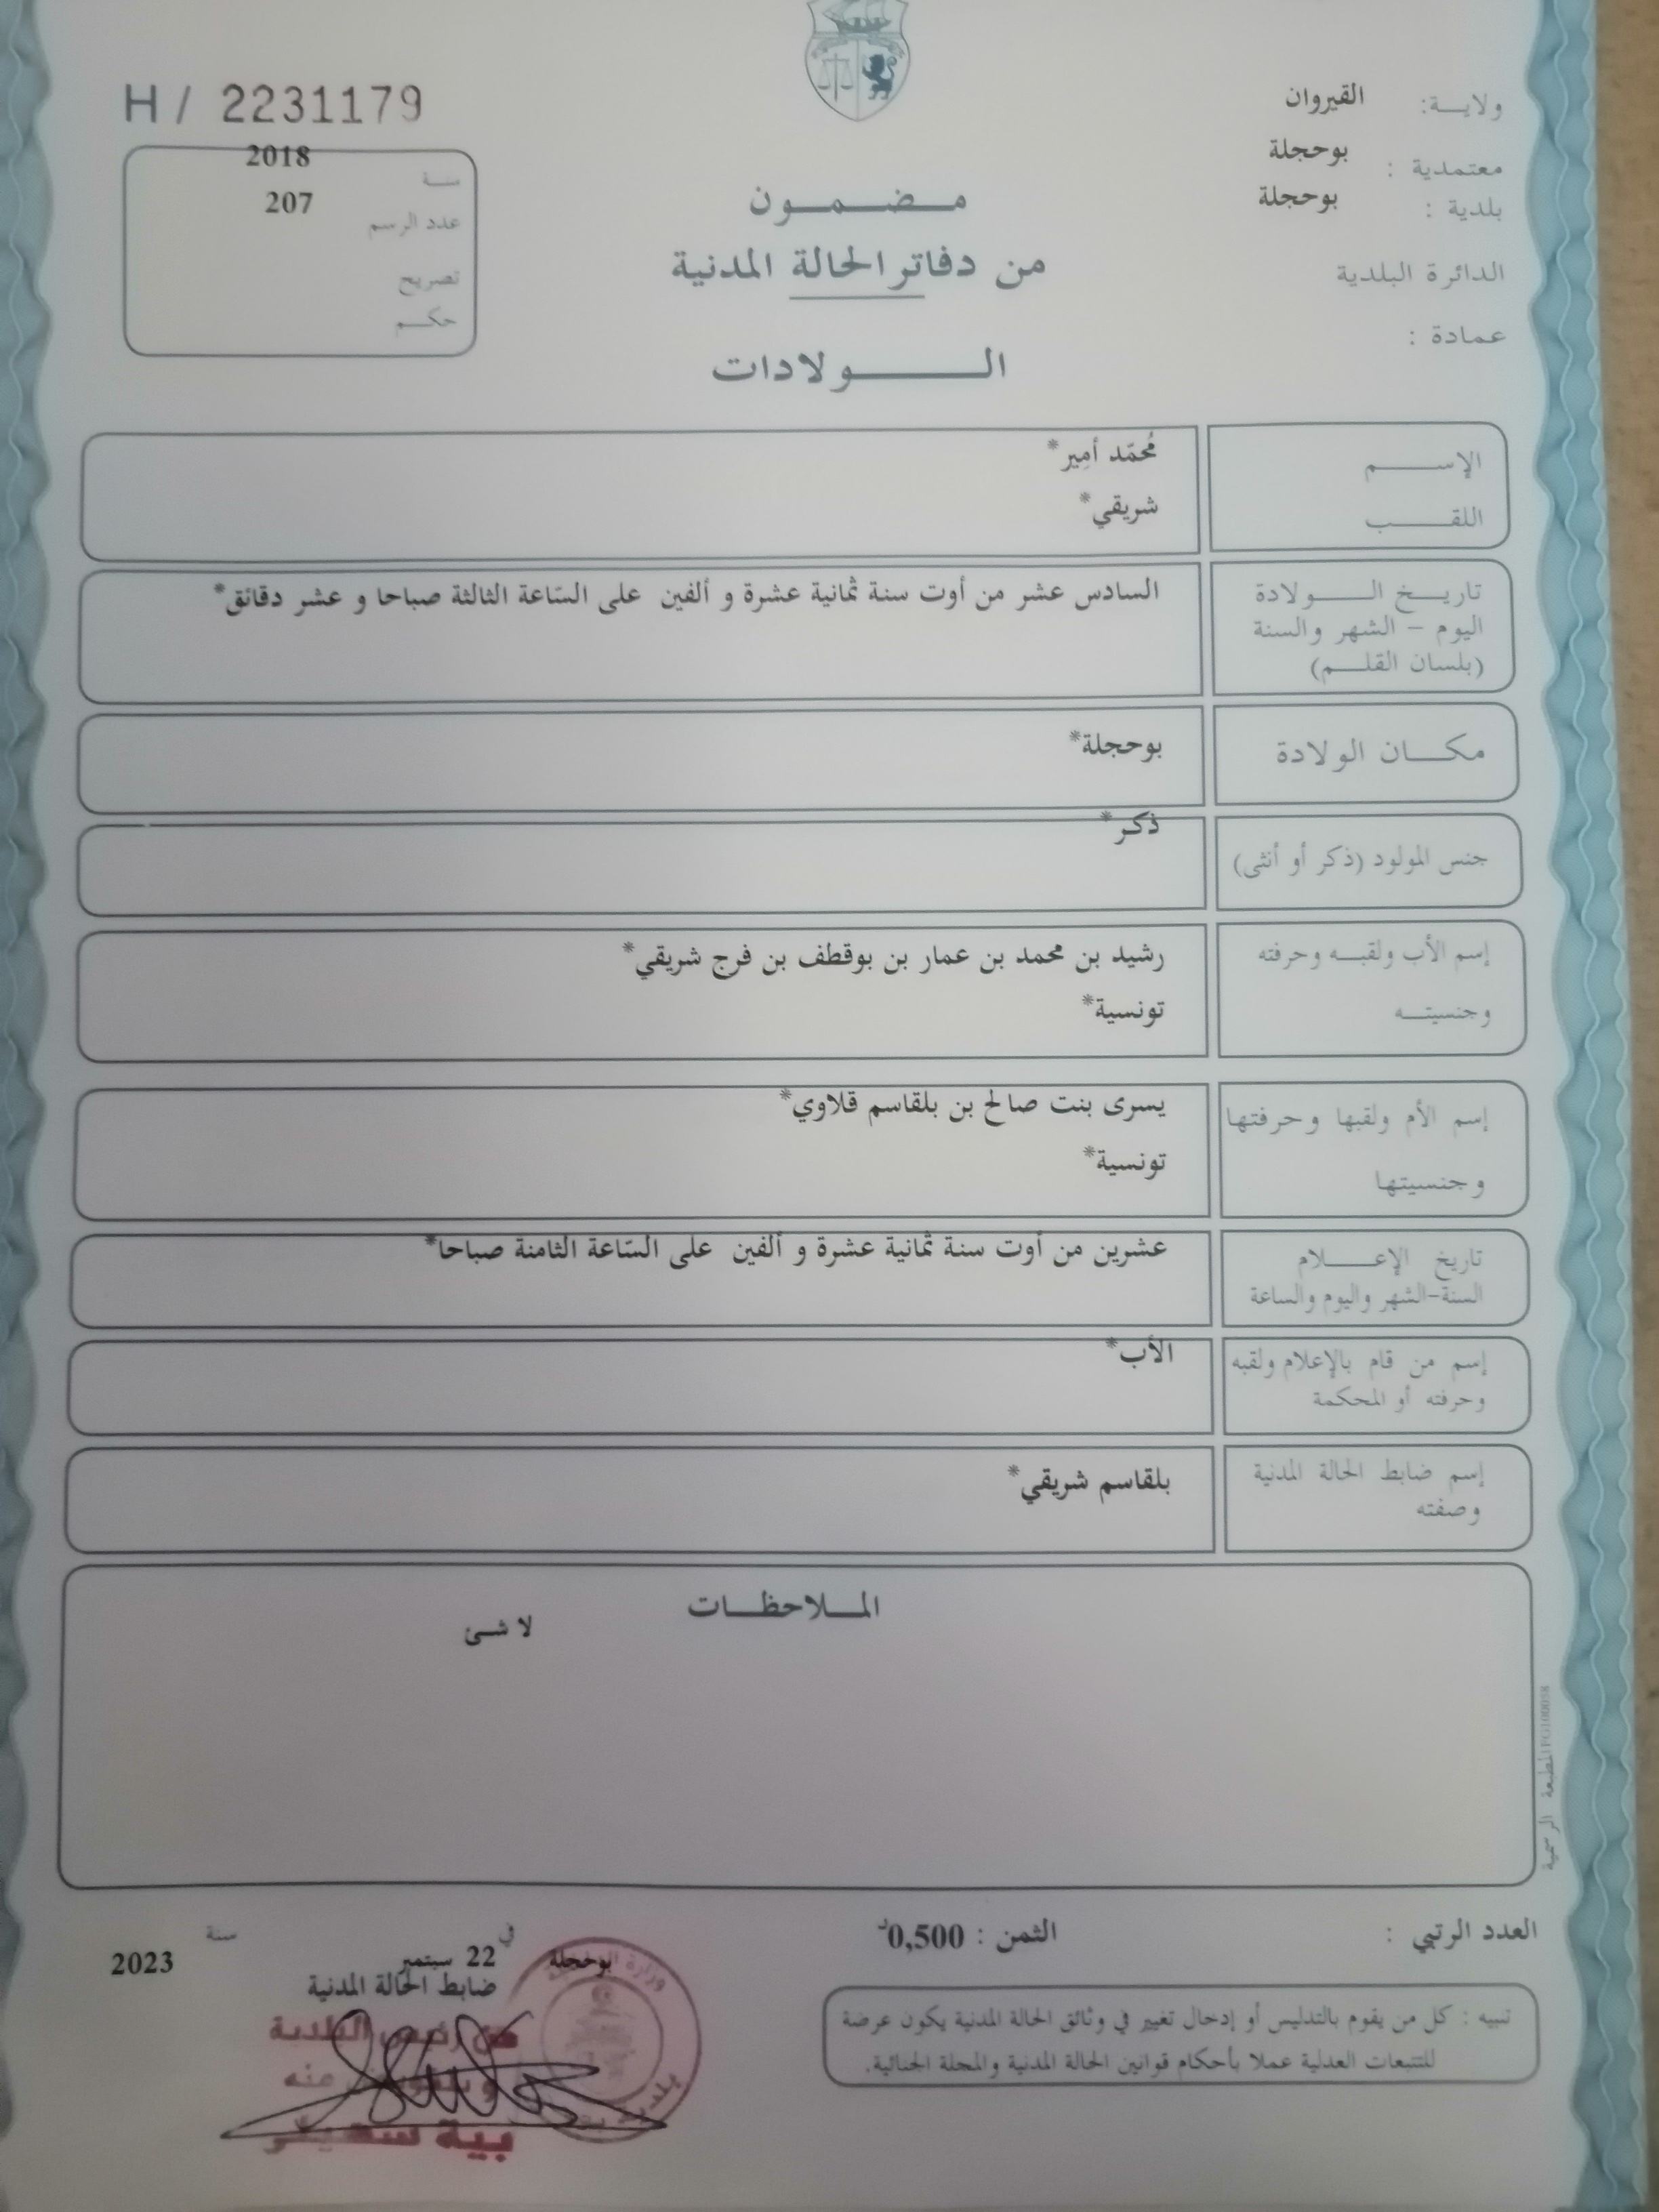 H / 2231179
ولايـــة: القيروان
معتمدية : بوحجلة
بلدية : بوحجلة
الدائرة البلدية
عمادة :
سنة 2018
عدد الرسم 207
تصريح
حكم
مضمون
من دفاتر الحالة المدنية
الولادات
الإسم مُحمّد أمِير*
اللقب شريقي*
تاريخ الولادة
اليوم - الشهر والسنة
(بلسان القلم)
السادس عشر من أوت سنة ثمانية عشرة و ألفين على السّاعة الثالثة صباحا و عشر دقائق*
مكان الولادة بوحجلة*
جنس المولود (ذكر أو أنثى) ذكر*
إسم الأب ولقبه وحرفته رشيد بن محمد بن عمار بن بوقطف بن فرج شريقي*
وجنسيته تونسية*
إسم الأم ولقبها وحرفتها يسرى بنت صالح بن بلقاسم قلاوي*
وجنسيتها تونسية*
تاريخ الإعلام
السنة-الشهر واليوم والساعة
عشرين من أوت سنة ثمانية عشرة و ألفين على السّاعة الثامنة صباحا*
إسم من قام بالإعلام ولقبه
وحرفته أو المحكمة
الأب*
إسم ضابط الحالة المدنية
وصفته
بلقاسم شريقي*
الملاحظات
لا شئ
المطبعة الرسمية
العدد الرتبي :
الثمن : 0,500د
بوحجلة في 22 سبتمبر سنة 2023
ضابط الحالة المدنية
عن رئيس البلدية
بية
تنبيه : كل من يقوم بالتدليس أو إدخال تغيير في وثائق الحالة المدنية يكون عرضة
للتتبعات العدلية عملا بأحكام قوانين الحالة المدنية والمجلة الجنائية.